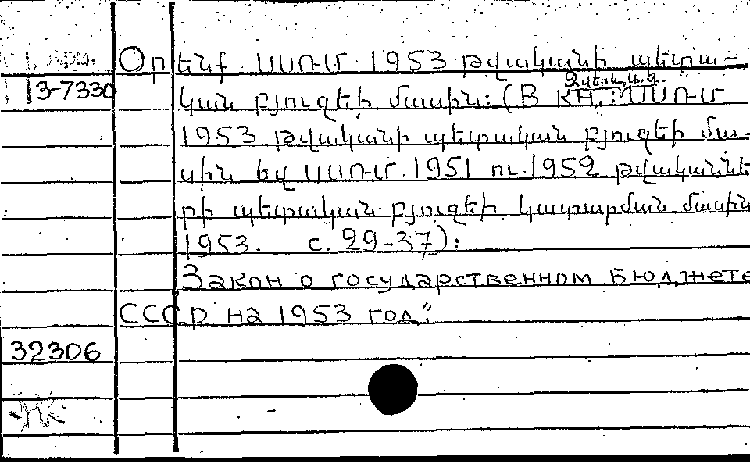 Օրենք ՍՍՌՄ 1953 թվականի պետա-
13-7330
կան բյուջեի մասին: (В кн.: ՍՍՌՄ
1953 թվականի պետական բյուջեի մա-
սին եվ ՍՍՌՄ. 1951 ու 1952 թվականնե
րի պետական բյուջեի կատարման մասին
1953. с. 29-37):
Закон о государственном бюджете
СССР на 1953 год."
32306